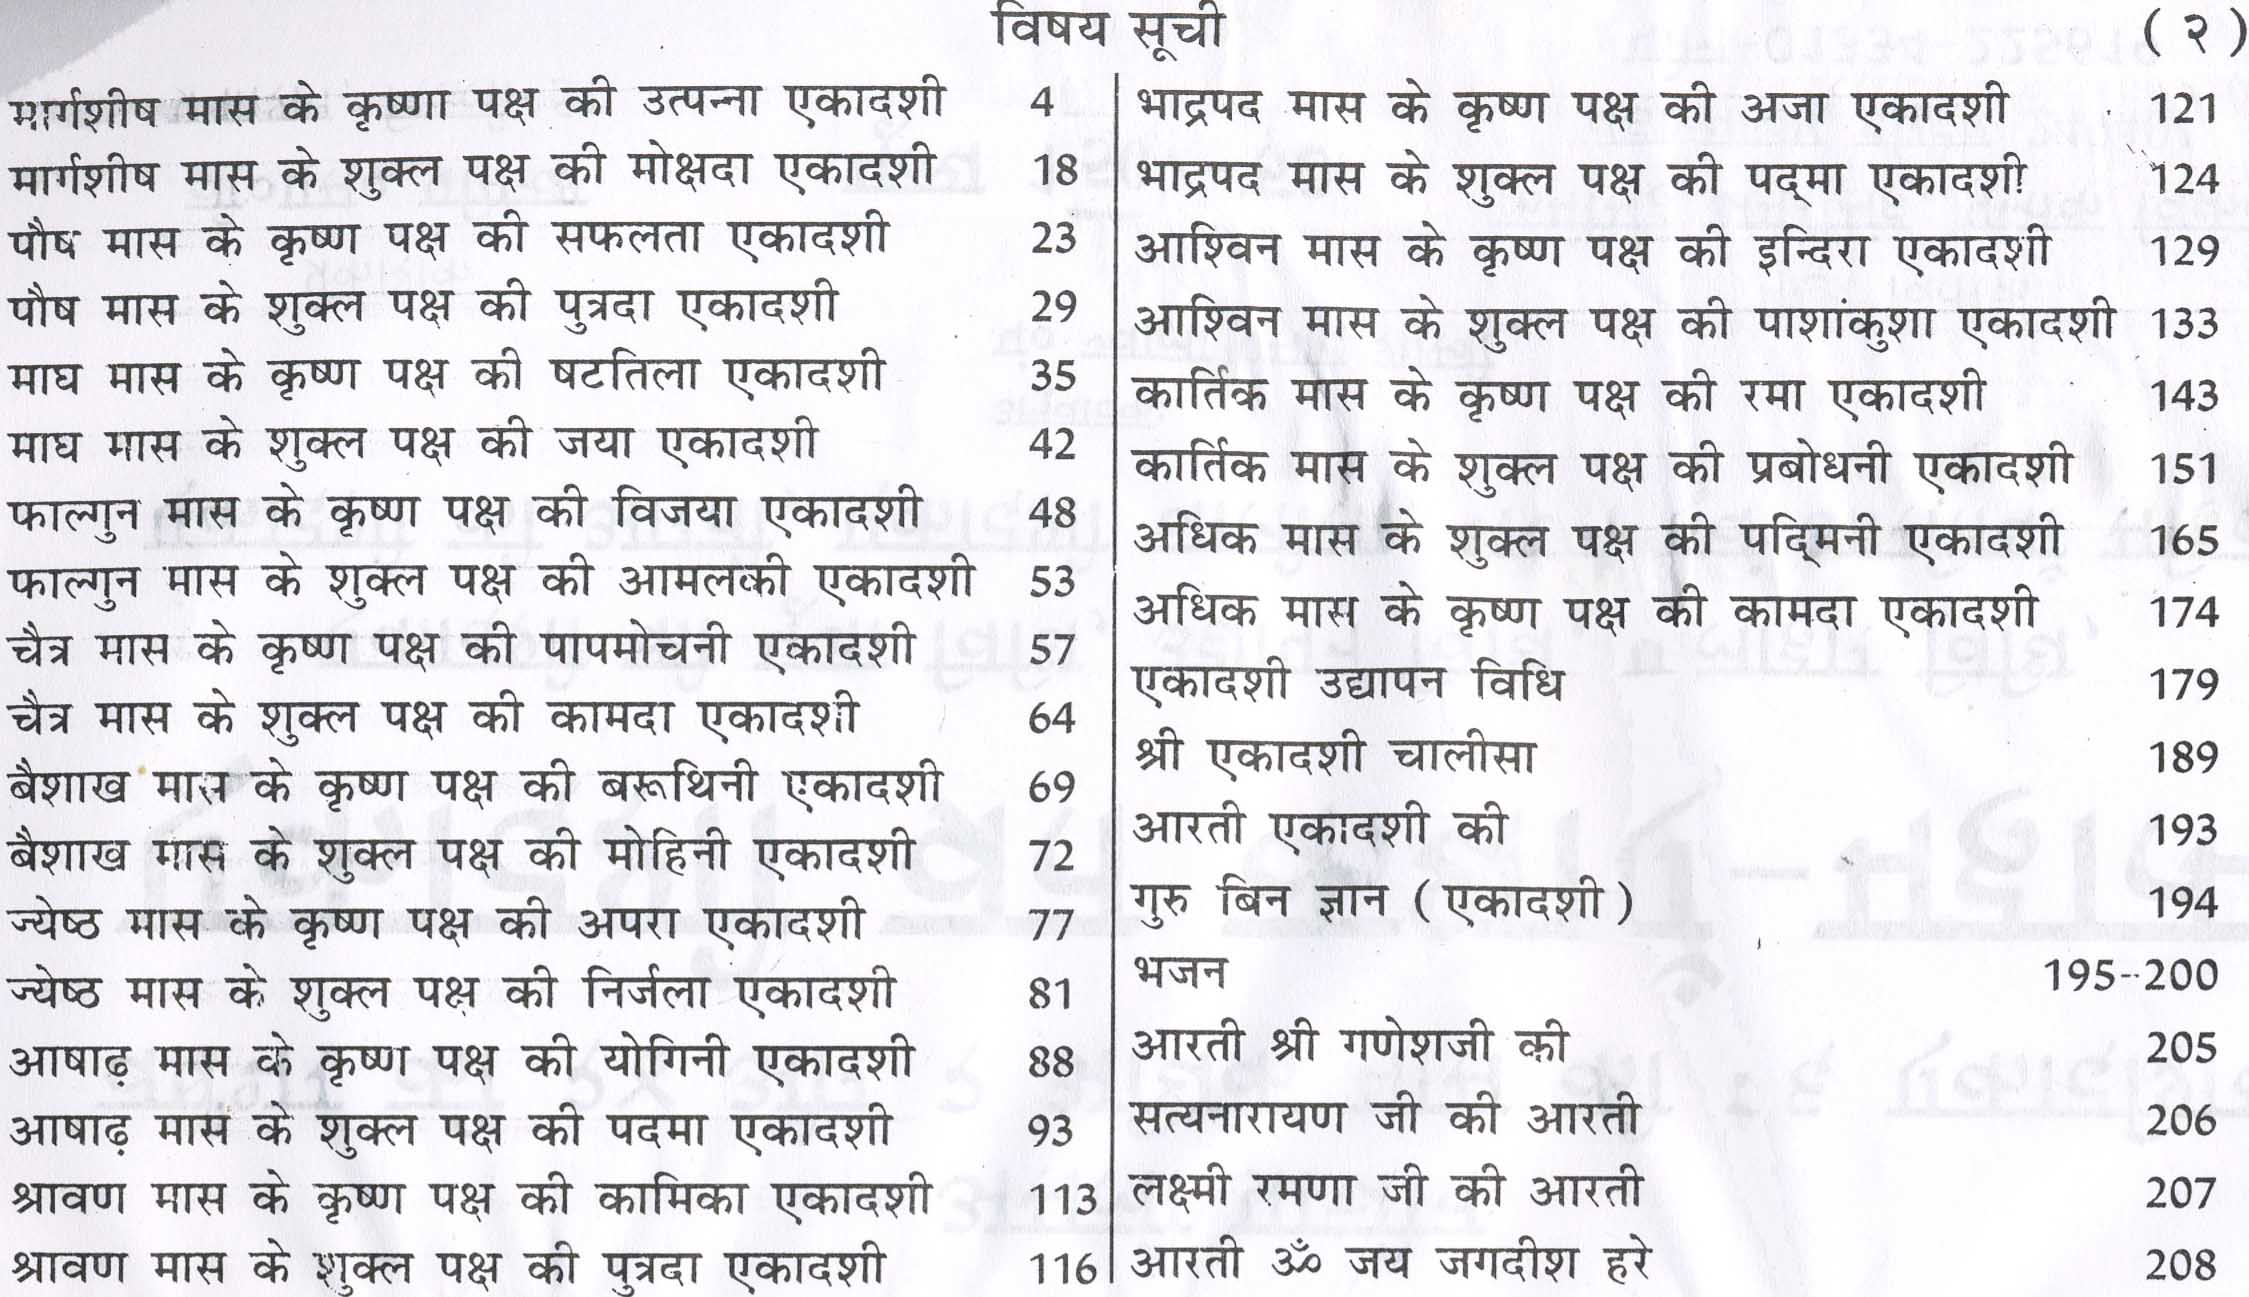 विषय सूची ( २ )
मार्गशीष मास के कृष्णा पक्ष की उत्पन्ना एकादशी 4
मार्गशीष मास के शुक्ल पक्ष की मोक्षदा एकादशी 18
पौष मास के कृष्ण पक्ष की सफलता एकादशी 23
पौष मास के शुक्ल पक्ष की पुत्रदा एकादशी 29
माघ मास के कृष्ण पक्ष की षटतिला एकादशी 35
माघ मास के शुक्ल पक्ष की जया एकादशी 42
फाल्गुन मास के कृष्ण पक्ष की विजया एकादशी 48
फाल्गुन मास के शुक्ल पक्ष की आमलकी एकादशी 53
चैत्र मास के कृष्ण पक्ष की पापमोचनी एकादशी 57
चैत्र मास के शुक्ल पक्ष की कामदा एकादशी 64
बैशाख मास के कृष्ण पक्ष की बरूथिनी एकादशी 69
बैशाख मास के शुक्ल पक्ष की मोहिनी एकादशी 72
ज्येष्ठ मास के कृष्ण पक्ष की अपरा एकादशी 77
ज्येष्ठ मास के शुक्ल पक्ष की निर्जला एकादशी 81
आषाढ़ मास के कृष्ण पक्ष की योगिनी एकादशी 88
आषाढ़ मास के शुक्ल पक्ष की पदमा एकादशी 93
श्रावण मास के कृष्ण पक्ष की कामिका एकादशी 113
श्रावण मास के शुक्ल पक्ष की पुत्रदा एकादशी 116
भाद्रपद मास के कृष्ण पक्ष की अजा एकादशी 121
भाद्रपद मास के शुक्ल पक्ष की पद्‌मा एकादशी 124
आश्विन मास के कृष्ण पक्ष की इन्दिरा एकादशी 129
आश्विन मास के शुक्ल पक्ष की पाशांकुशा एकादशी 133
कार्तिक मास के कृष्ण पक्ष की रमा एकादशी 143
कार्तिक मास के शुक्ल पक्ष की प्रबोधनी एकादशी 151
अधिक मास के शुक्ल पक्ष की पद्‌मिनी एकादशी 165
अधिक मास के कृष्ण पक्ष की कामदा एकादशी 174
एकादशी उद्यापन विधि 179
श्री एकादशी चालीसा 189
आरती एकादशी की 193
गुरु बिन ज्ञान ( एकादशी ) 194
भजन 195--200
आरती श्री गणेशजी की 205
सत्यनारायण जी की आरती 206
लक्ष्मी रमणा जी की आरती 207
आरती ॐ जय जगदीश हरे 208